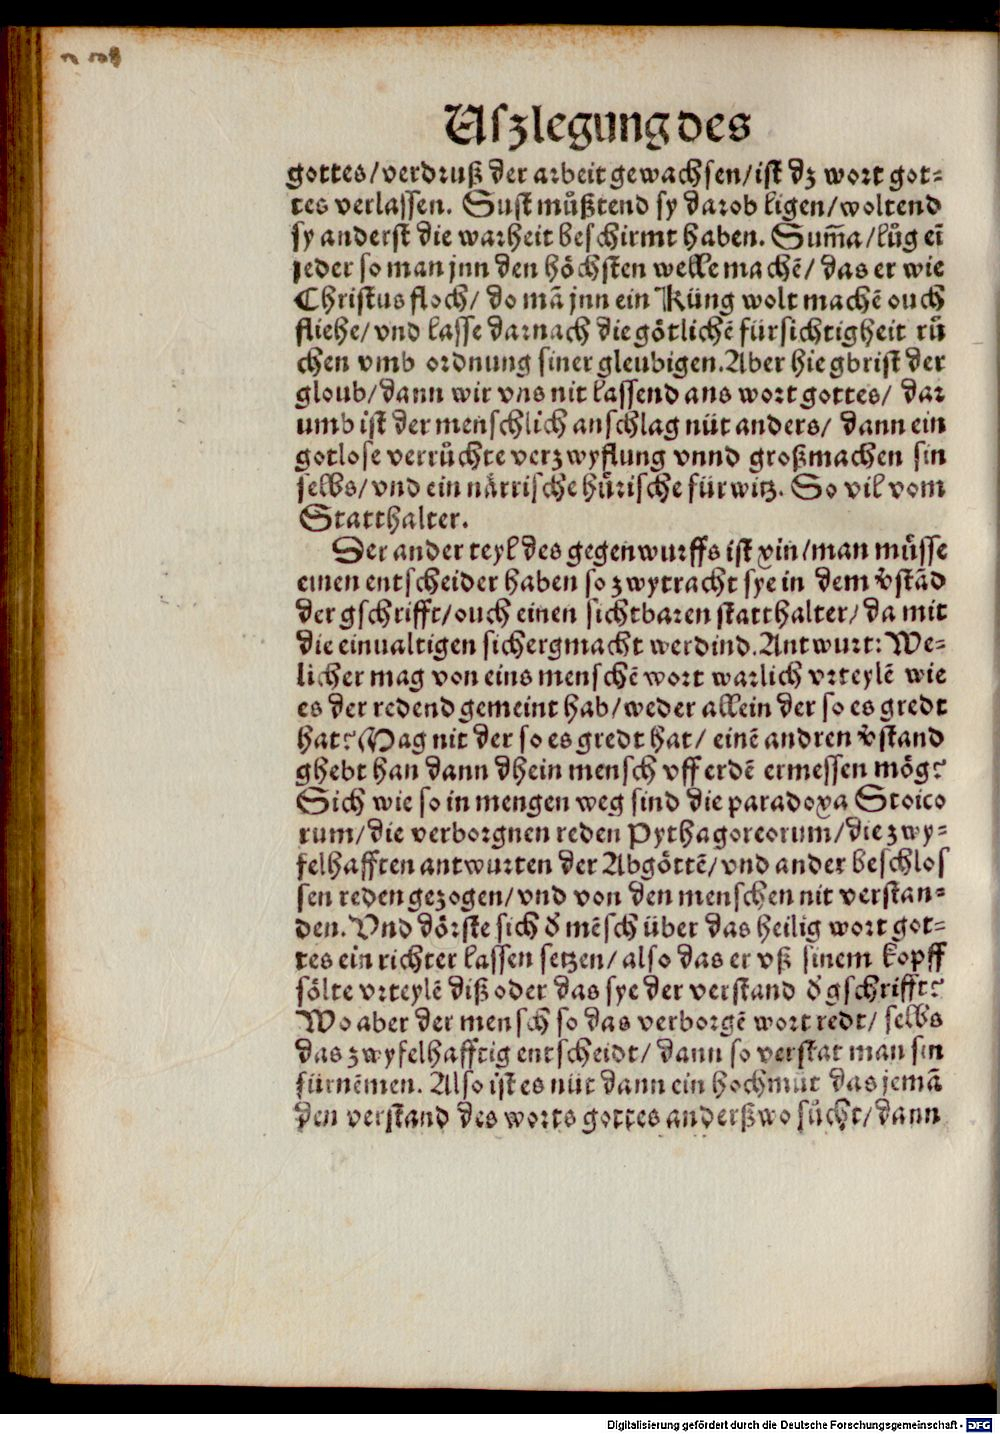 Uſzlegung des
gottes/verdruß der arbeit gewachsen/ist dz wort got-
tes verlassen. Sust muͤßtend sy darob ligen/woltend
sy anderst die warheit beschirmt haben. Sum̄a/luͦg eī
jeder so man jnn den hoͤchsten welle machē/ das er wie
Christus floch/ do mā jnn ein Küng wolt machē ouch
fliehe/ vnd lasse darnach die goͤtlichē fürsichtigheit ruͦ
chen vmb ordnung siner gleubigen. Aber hie gbrist der
gloub/dann wir vns nit lassend ans wort gottes/ dar
umb ist der menschlich anschlag nüt anders/ dann ein
gotlose verruͦchte verzwyflung vnnd großmachen sin
selbs/ vnd ein naͤrrische huͤrische fürwitz. So vil vom
Statthalter.
Der ander teyl des gegenwurffs ist xin/man muͤsse
einen entscheider haben so zwytracht sye in dem v̊stād
der gschrifft/ouch einen sichtbaren statthalter/ da mit
die einualtigen sichergmacht werdind. Antwurt: We-
licher mag von eins menschē wort warlich vrteylē wie
es der redend gemeint hab/weder allein der so es gredt
hat? Mag nit der so es gredt hat/ einē andren v̊stand
ghebt han dann dhein mensch vff erdē ermessen moͤg?
Sich wie so in mengen weg sind die paradoxa Stoico
rum/die verborgnen reden Pythagoreorum/die zwy-
felhafften antwurten der Abgoͤttē/vnd ander beschlos
sen reden gezogen/vnd von den menschen nit verstan-
den. Vnd doͤrste sich d̓ mēsch über das heilig wort got-
tes ein richter lassen setzen/ also das er vß sinem kopff
soͤlte vrteylē diß oder das sye der verstand d̓ gschrifft?
Wo aber der mensch so das verborgē wort redt/ selbs
das zwyfelhafftig entscheidt/ dann so verstat man sin
fürnēmen. Also ist es nüt dann ein hochmuͦt das jemā
den verstand des worts gottes anderßwo suͦcht/dann
Digitalisierung gefördert durch die Deutsche Forschungsgemeinschaft - DFG